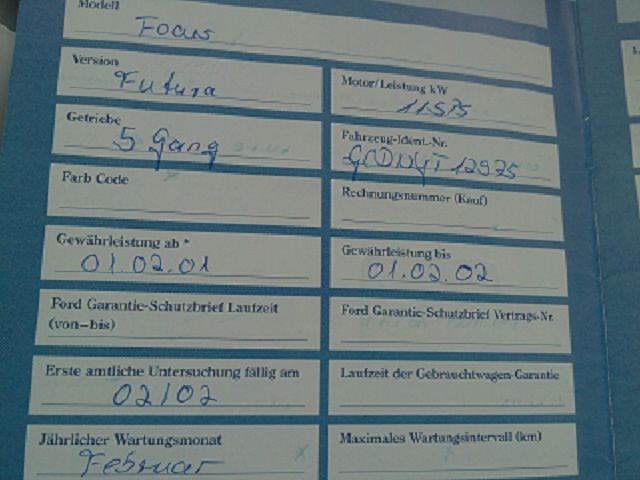 Modell
Focus
Version
Futura
Motor/Leistung kW
Getriebe
5 Gang
Fahrzeug-Ident.-Nr.
Farb Code
Rechnungsnummer (Kauf)
Gewährleistung ab *
01.02.01
Gewährleistung bis
01.02.02
Ford Garantie-Schutzbrief Laufzeit
(von–bis)
Ford Garantie-Schutzbrief Vertrags-Nr.
Erste amtliche Untersuchung fällig am
02/02
Laufzeit der Gebrauchtwagen-Garantie
Jährlicher Wartungsmonat
Februar
Maximales Wartungsintervall (km)